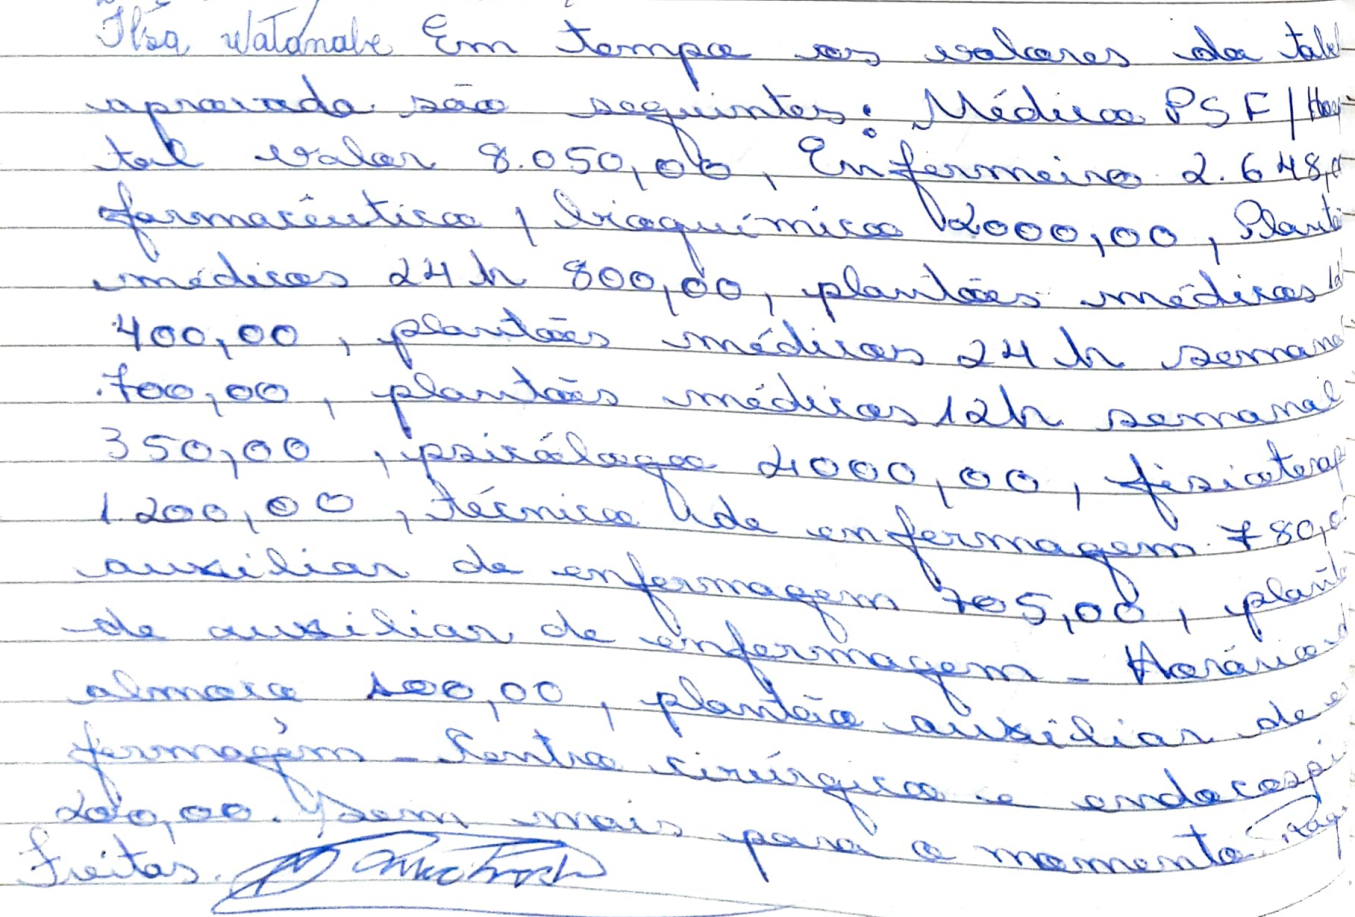 Ilsa Watanabe Em tempo os valores da tabel
aprovada são seguintes: Médico PSF/Hosp
tal valor 8.050,00, Enfermeiro 2.648,0
farmacêutico / bioquímico 2000,00, Plantõ
médicos 24 h 800,00, plantões médicos 12
400,00, plantões médicos 24 h semana
700,00, plantões médicos 12h semanal
350,00, psicólogo 2000,00, fisioterap
1.200,00, técnico de enfermagem 780,0
auxiliar de enfermagem 705,00, plantã
de auxiliar de enfermagem - Horário d
almoço 100,00, plantão auxiliar de e
fermagem - Centro cirúrgico e endoscopi
200,00. Sem mais para o momento
Freitas.